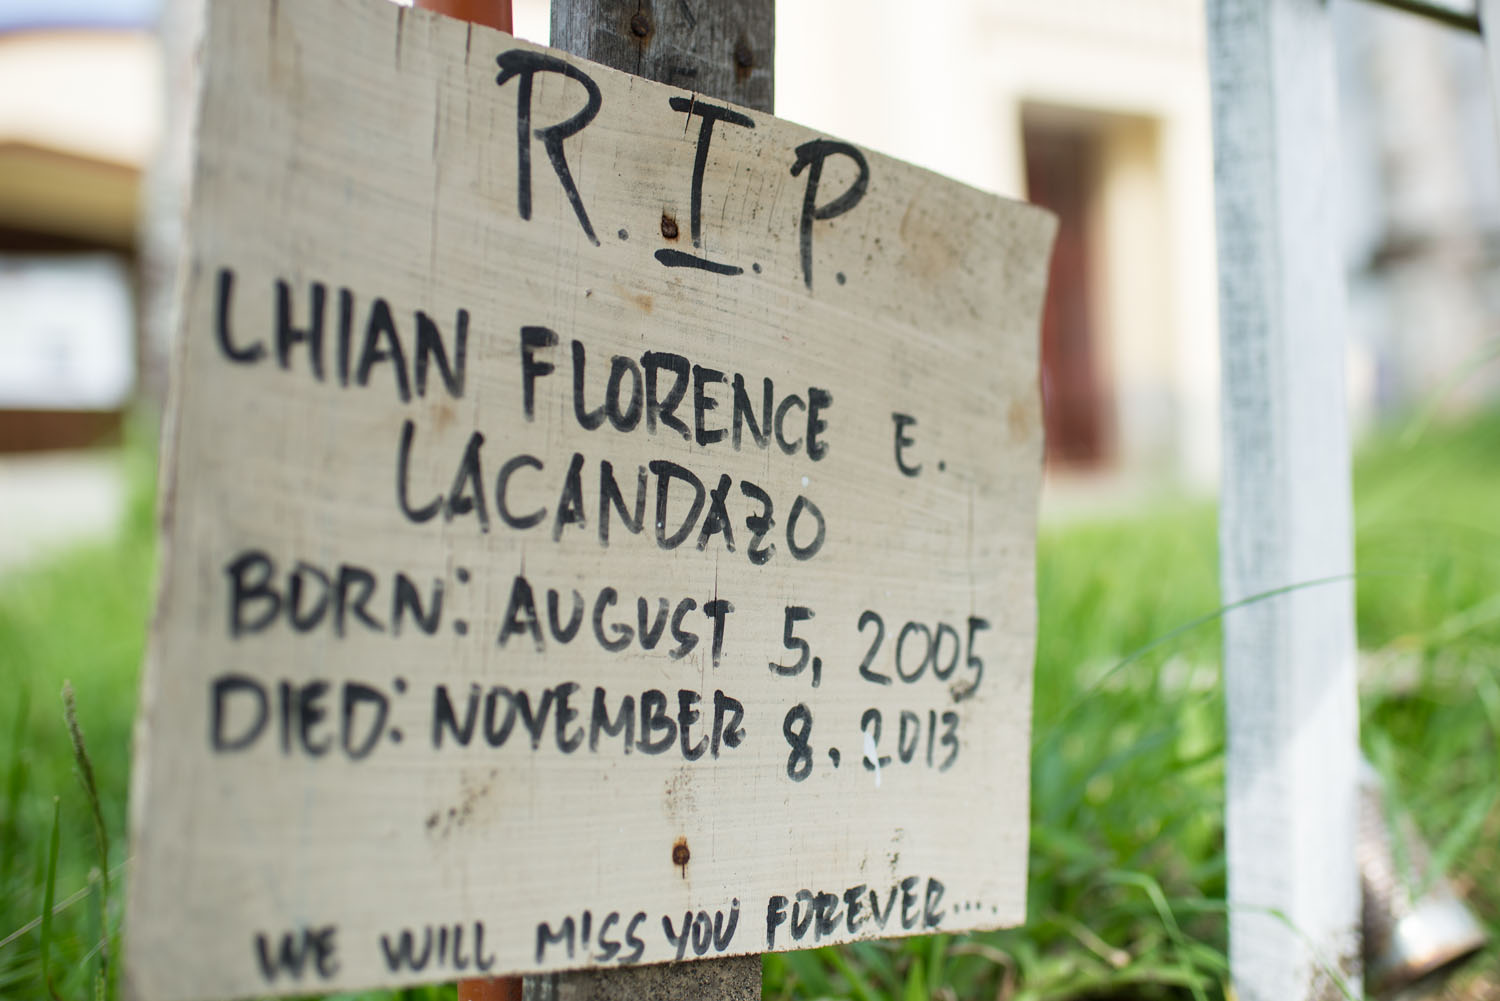 R.I.P.
LHIAN FLORENCE E.
LACANDAZO
BORN: AUGUST 5, 2005
DIED: NOVEMBER 8, 2013
WE WILL MISS YOU FOREVER....